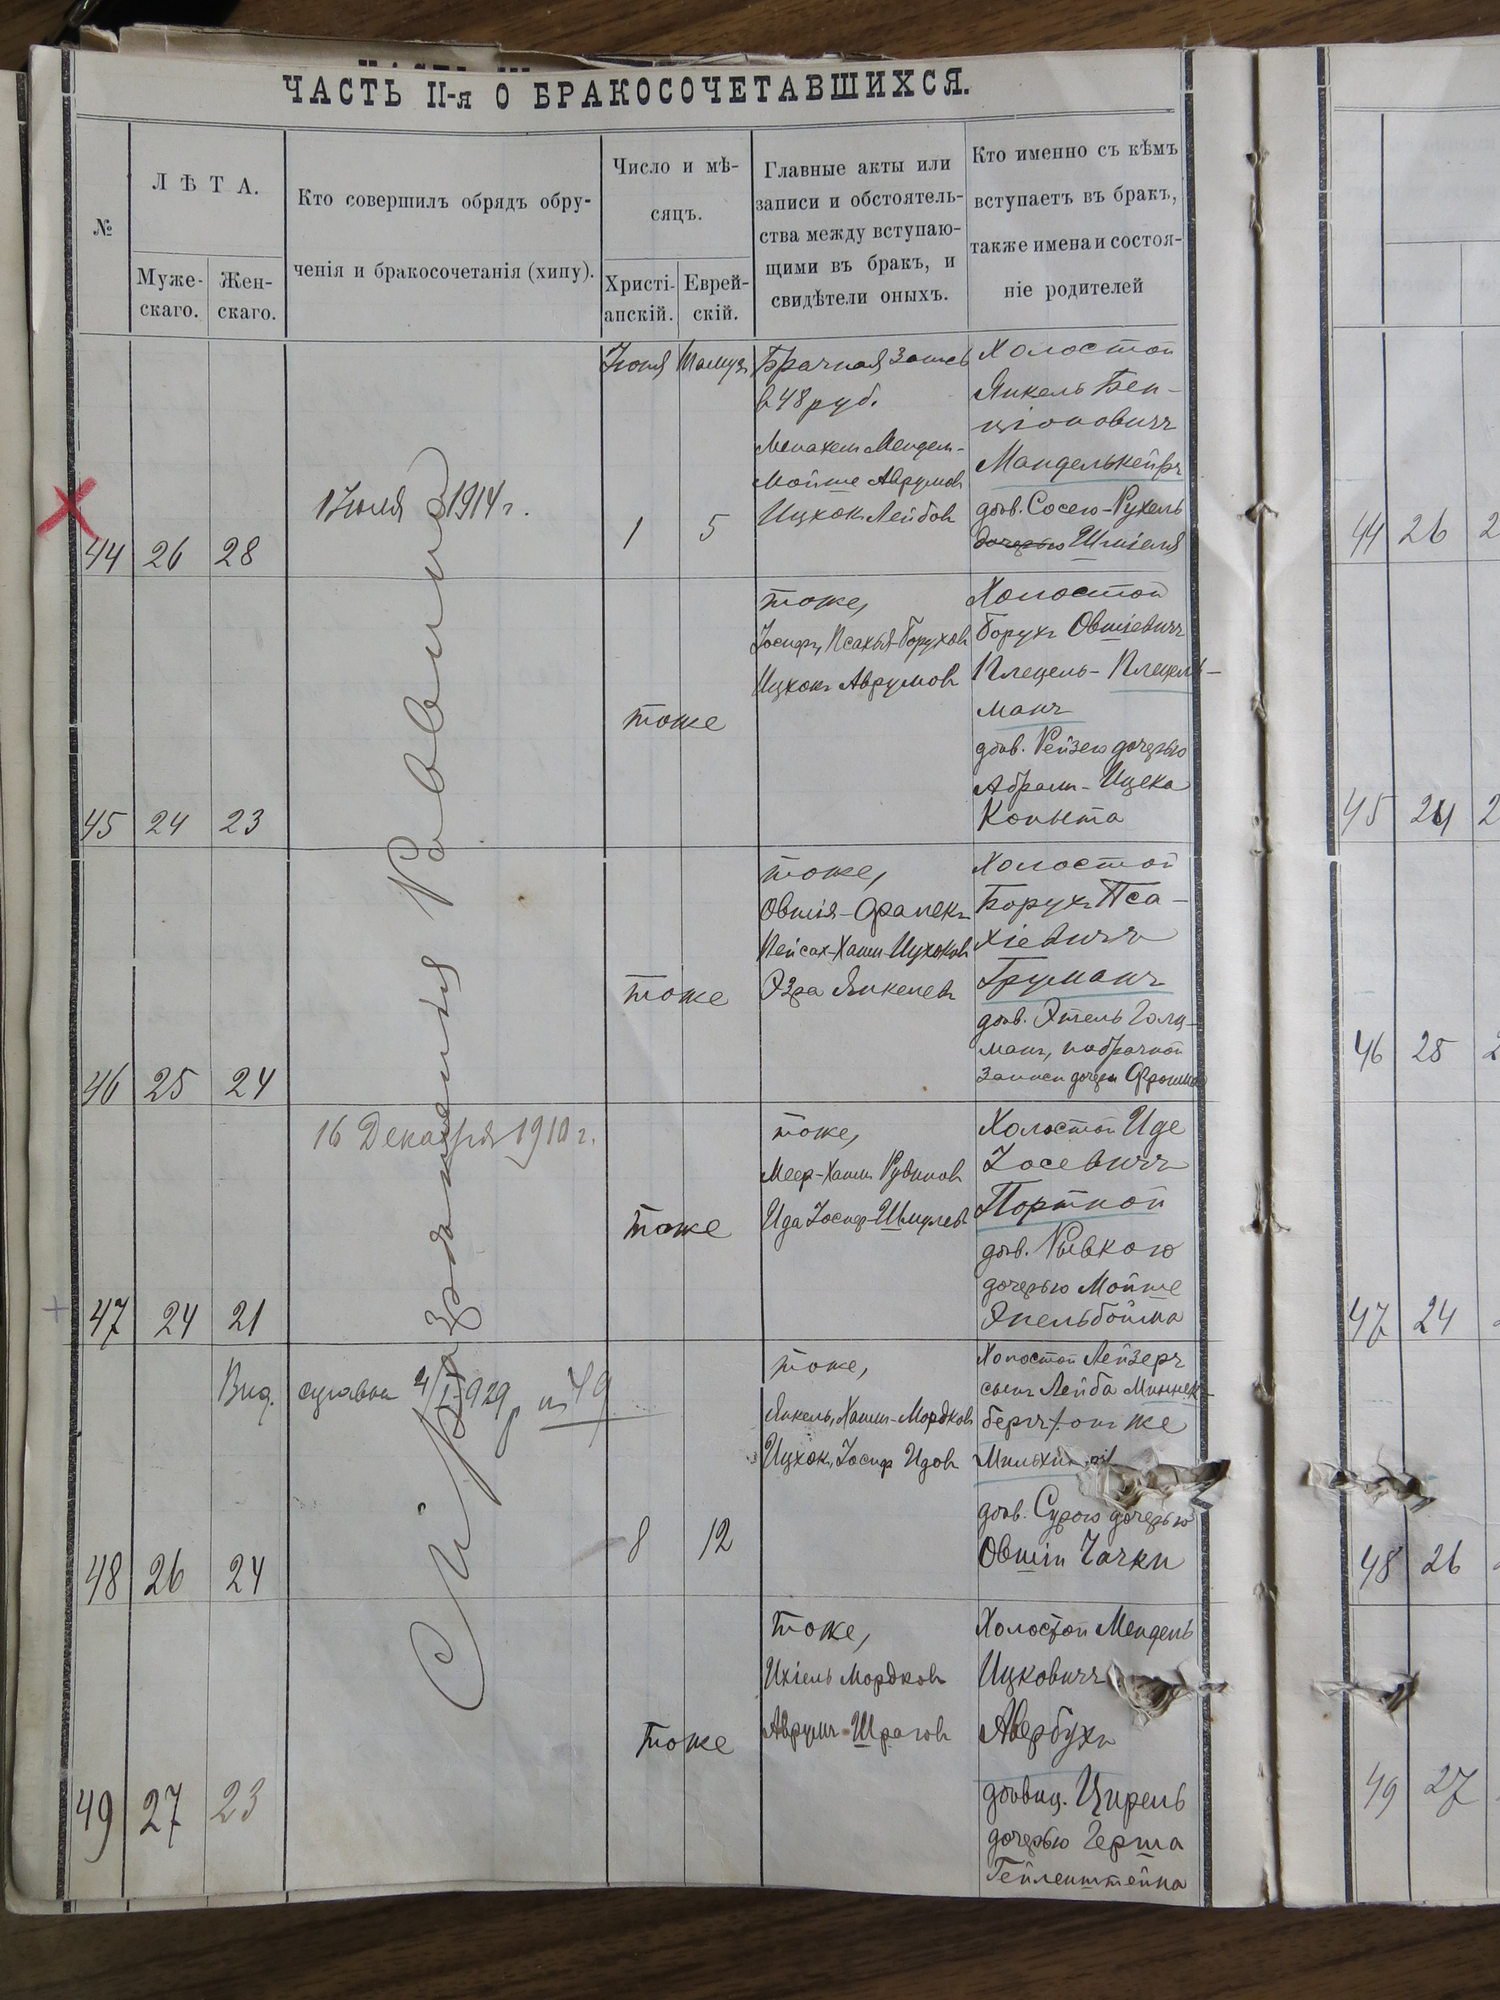 ЧАСТЬ II-я О БРАКОСОЧЕТАВШИХСЯ.
№
ЛѢТА.
Муже-
скаго.
Жен-
скаго.
Кто совершилъ обрядъ обру-
ченія и бракосочетанія (хипу).
Число и мѣ-
сяцъ.
Христі-
анскій.
Еврей-
скій.
Главные акты или
записи и обстоятель-
ства между вступаю-
щими въ бракъ, и
свидѣтели оныхъ.
Кто именно съ кѣмъ
вступаетъ въ бракъ,
также имена и состоя-
ніе родителей
44 26 28
1 Іюля 1914 г.
Іюня Тамузъ
1 5
Брачная запись
в 48 руб.
Менахем Мендель-
Мойше Аврумов
Ицхок Лейбов
Холостой
Янкель Бен-
ціонович
Манделькейръ
дѣв. Сосею-Рухель
дочерью Шміеля
45 24 23
тоже
тоже,
Іосифъ, Псахья-Борухов
Ицхокъ Аврумовъ
Холостой
Борухъ Овшіевичъ
Плецель-Плецель-
манъ
дѣв. Рейзею дочерью
Абрамъ-Ицека
Копыта
46 25 24
тоже
тоже,
Овшія-
Пейсах-Хаим Ицхоков
Эзра Янкелев
Холостой
Борухъ Пса-
хіевичъ
Груманъ
дѣв. Этель Голц-
манъ, по брачной
записи дочери
47 24 21
16 Декабря 1910 г.
тоже
тоже,
Меер-Хаим Рувинов
Ида Іосиф-Шмулев
Холостой Иде
Іосевичъ
Портной
дѣв. Рывкою
дочерью Мойше
Эпельбойма
48 26 24
8 12
тоже,
Янкель, Хаим-Мордков
Ицхок, Іосиф Идов
Холостой Лейзеръ
сынъ Лейба
бергъ он же
дѣв. Сурою дочерью
Овшіи Чачки
49 27 23
тоже
тоже,
Ихіель Мордков
Аврумъ-Шрагов
Холостой Мендель
Ицковичъ
Авербухъ
дѣвиц. Цирель
дочерью Герша
Гейленштейна
44 26
45 24
46 25
47 24
48 26
49 27